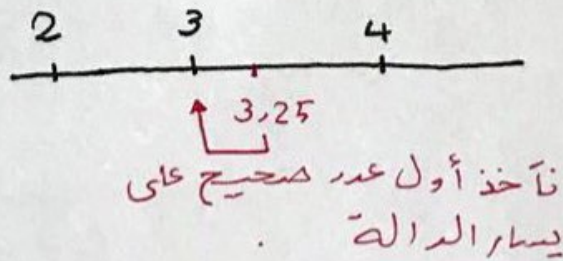 2 3 4
3,25
نأخذ أول عدد صحيح على
يسار الدالة .